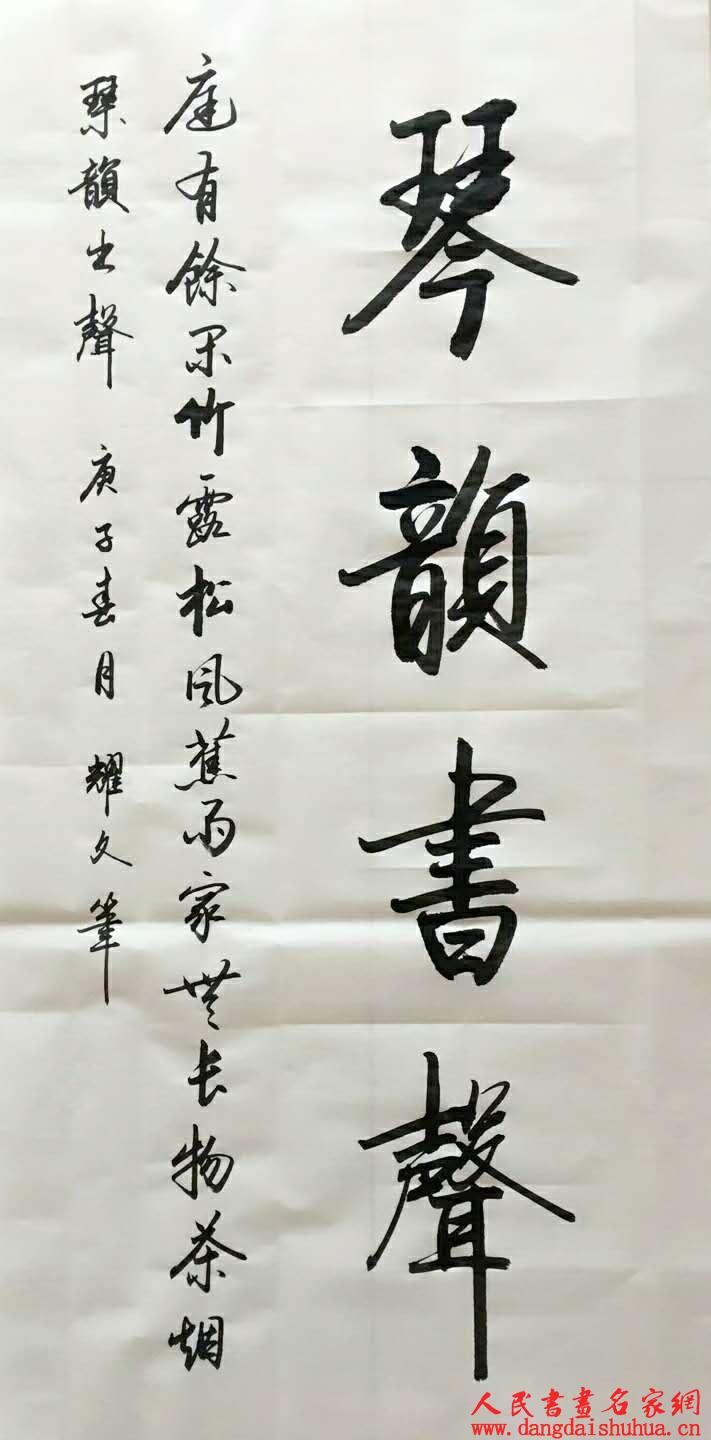 琴韻書聲
庭有餘闲竹露松風蕉雨家無长物茶烟
琴韻书聲 庚子春月 耀文筆
人民書畫名家網
www.dangdaishuhua.cn